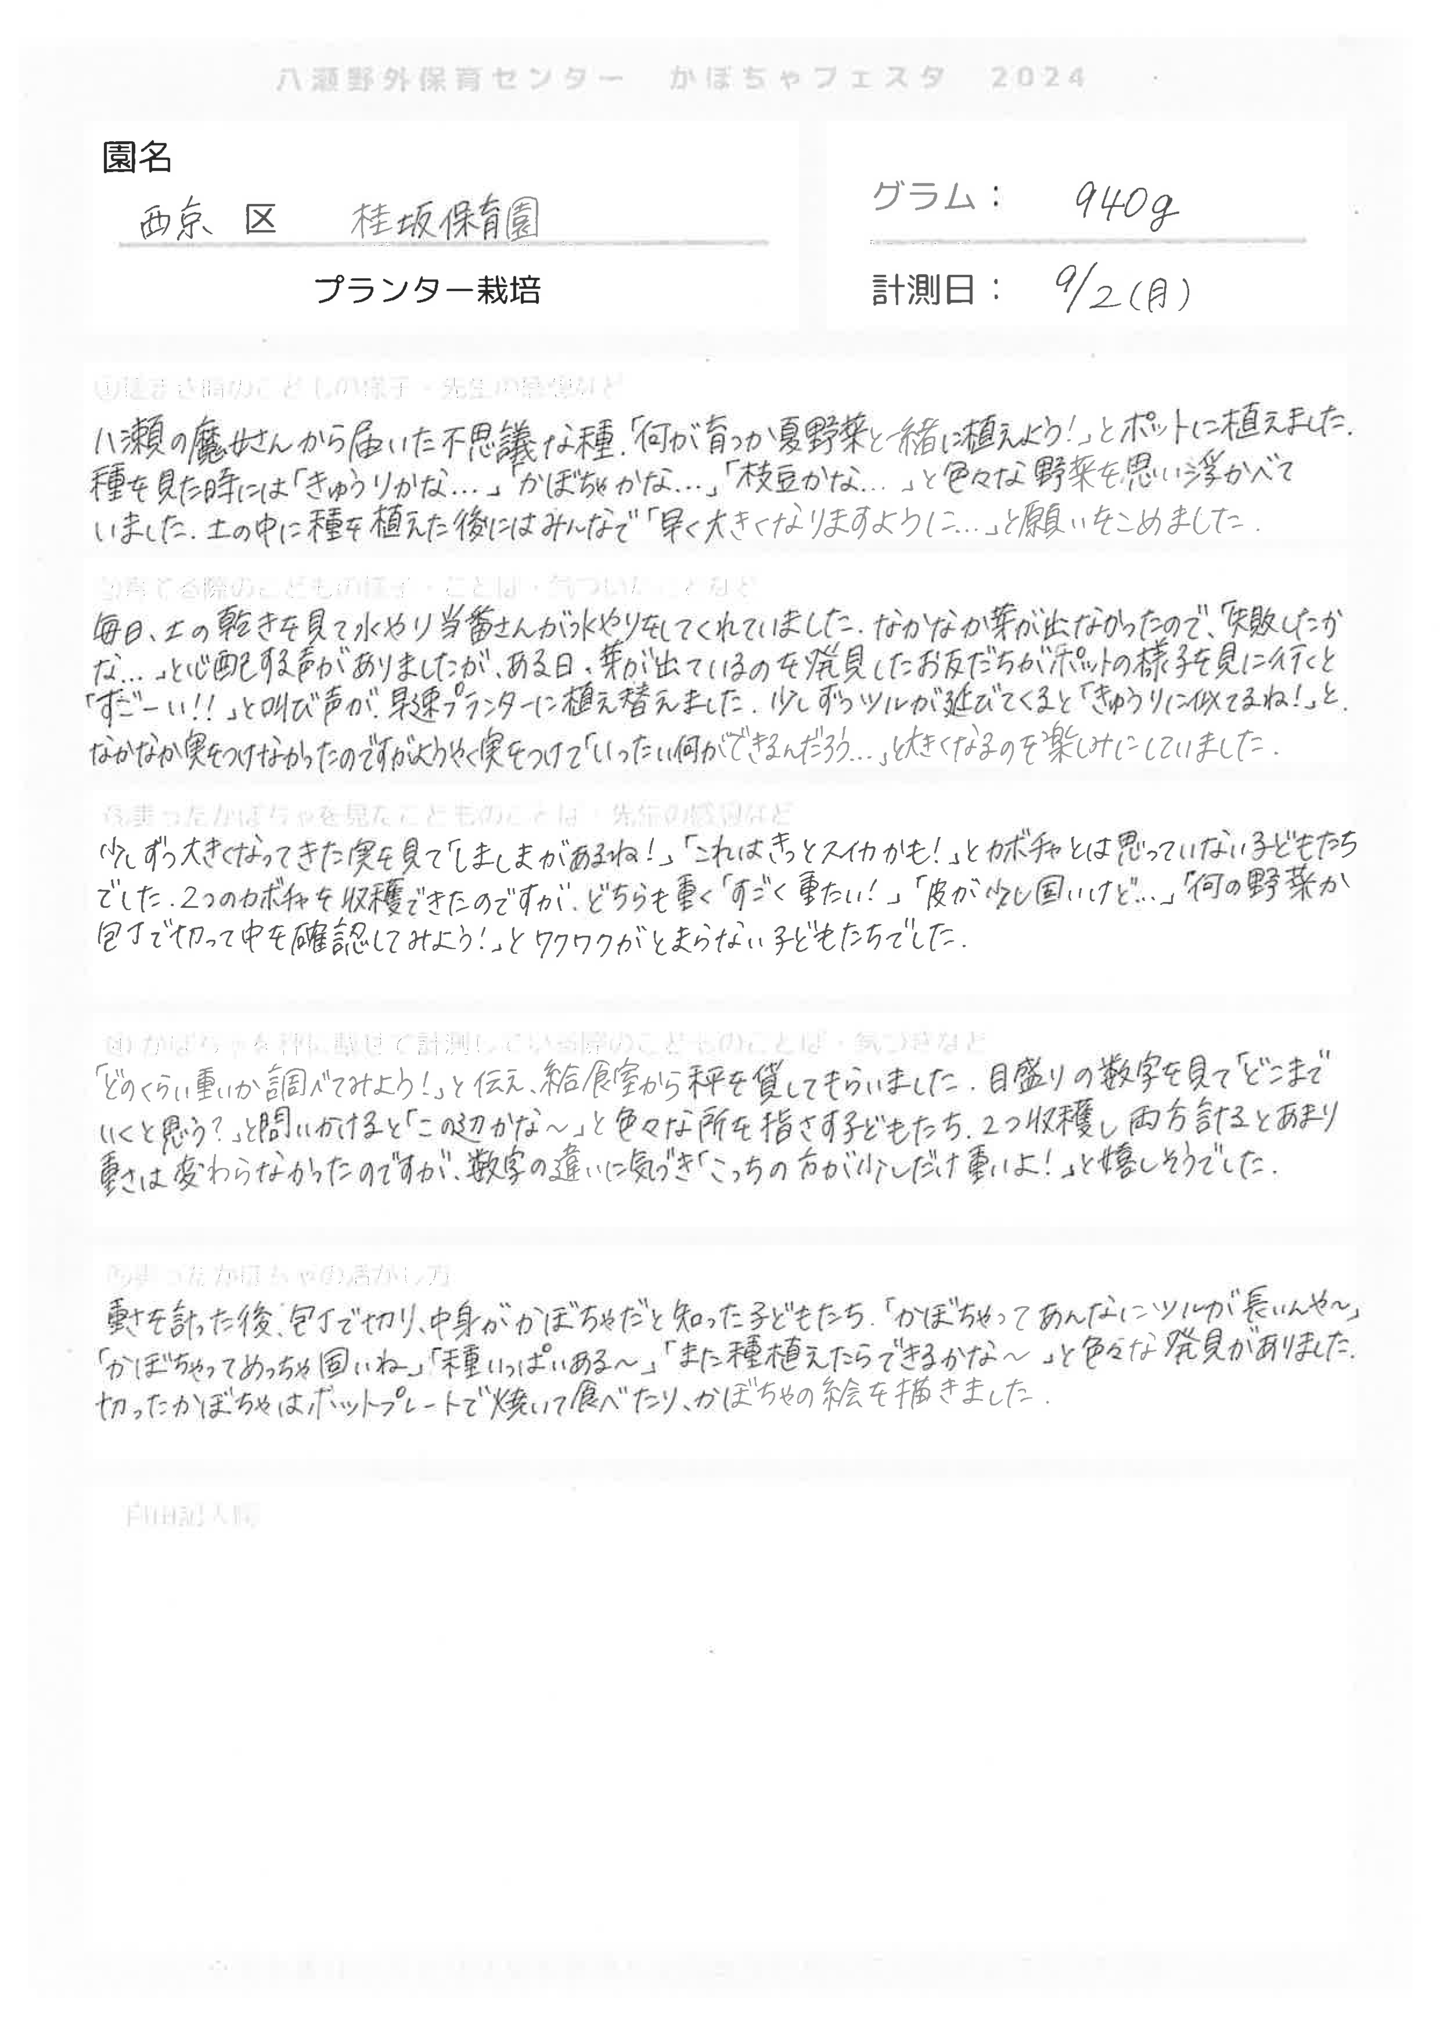 八瀬野外保育センター かぼちゃフェスタ 2024
園名
西京 区 桂坂保育園
グラム： 940g
プランター栽培
計測日： 9/2(月)
八瀬の魔女さんから届いた不思議な種.「何が育つか夏野菜と一緒に植えよう!」とポットに植えました.
種を見た時には「きゅうりかな...」「かぼちゃかな...」「枝豆かな...」と色々な野菜を思い浮かべて
いました.土の中に種を植えた後にはみんなで「早く大きくなりますように...」と願いをこめました.
②育てる際のこどもの様子・ことば・気づいたことなど
毎日、土の乾きを見て水やり当番さんが水やりをしてくれていました.なかなか芽が出なかったので、「失敗したか
な...」と心配する声がありましたが、ある日、芽が出ているのを発見したお友だちがポットの様子を見に行くと
「すごーい!!」と叫び声が.早速プランターに植え替えました.少しずつツルが延びてくると「きゅうりに似てるね!」と.
なかなか実をつけなかったのですがようやく実をつけて「いったい何ができるんだろう...」と大きくなるのを楽しみにしていました.
少しずつ大きくなってきた実を見て「しましまがあるね!」「これはきっとスイカかも!」とカボチャとは思っていない子どもたち
でした.2つのカボチャを収穫できたのですが、どちらも重く「すごく重たい!」「皮が少し固いけど...」「何の野菜か
包丁で切って中を確認してみよう!」とワクワクがとまらない子どもたちでした.
④かぼちゃを秤に載せて計測している際のこどものことば・気づきなど
「どのくらい重いか調べてみよう!」と伝え、給食室から秤を貸してもらいました.目盛りの数字を見て「どこまで
いくと思う?」と問いかけると「この辺かな〜」と色々な所を指さす子どもたち.2つ収穫し両方計るとあまり
重さは変わらなかったのですが、数字の違いに気づき「こっちの方が少しだけ重いよ!」と嬉しそうでした.
重さを計った後、包丁で切り、中身がかぼちゃだと知った子どもたち.「かぼちゃってあんなにツルが長いんや〜」
「かぼちゃってめっちゃ固いね」「種いっぱいある〜」「また種植えたらできるかな〜」と色々な発見がありました.
切ったかぼちゃはホットプレートで焼いて食べたり、かぼちゃの絵を描きました.
自由記入欄